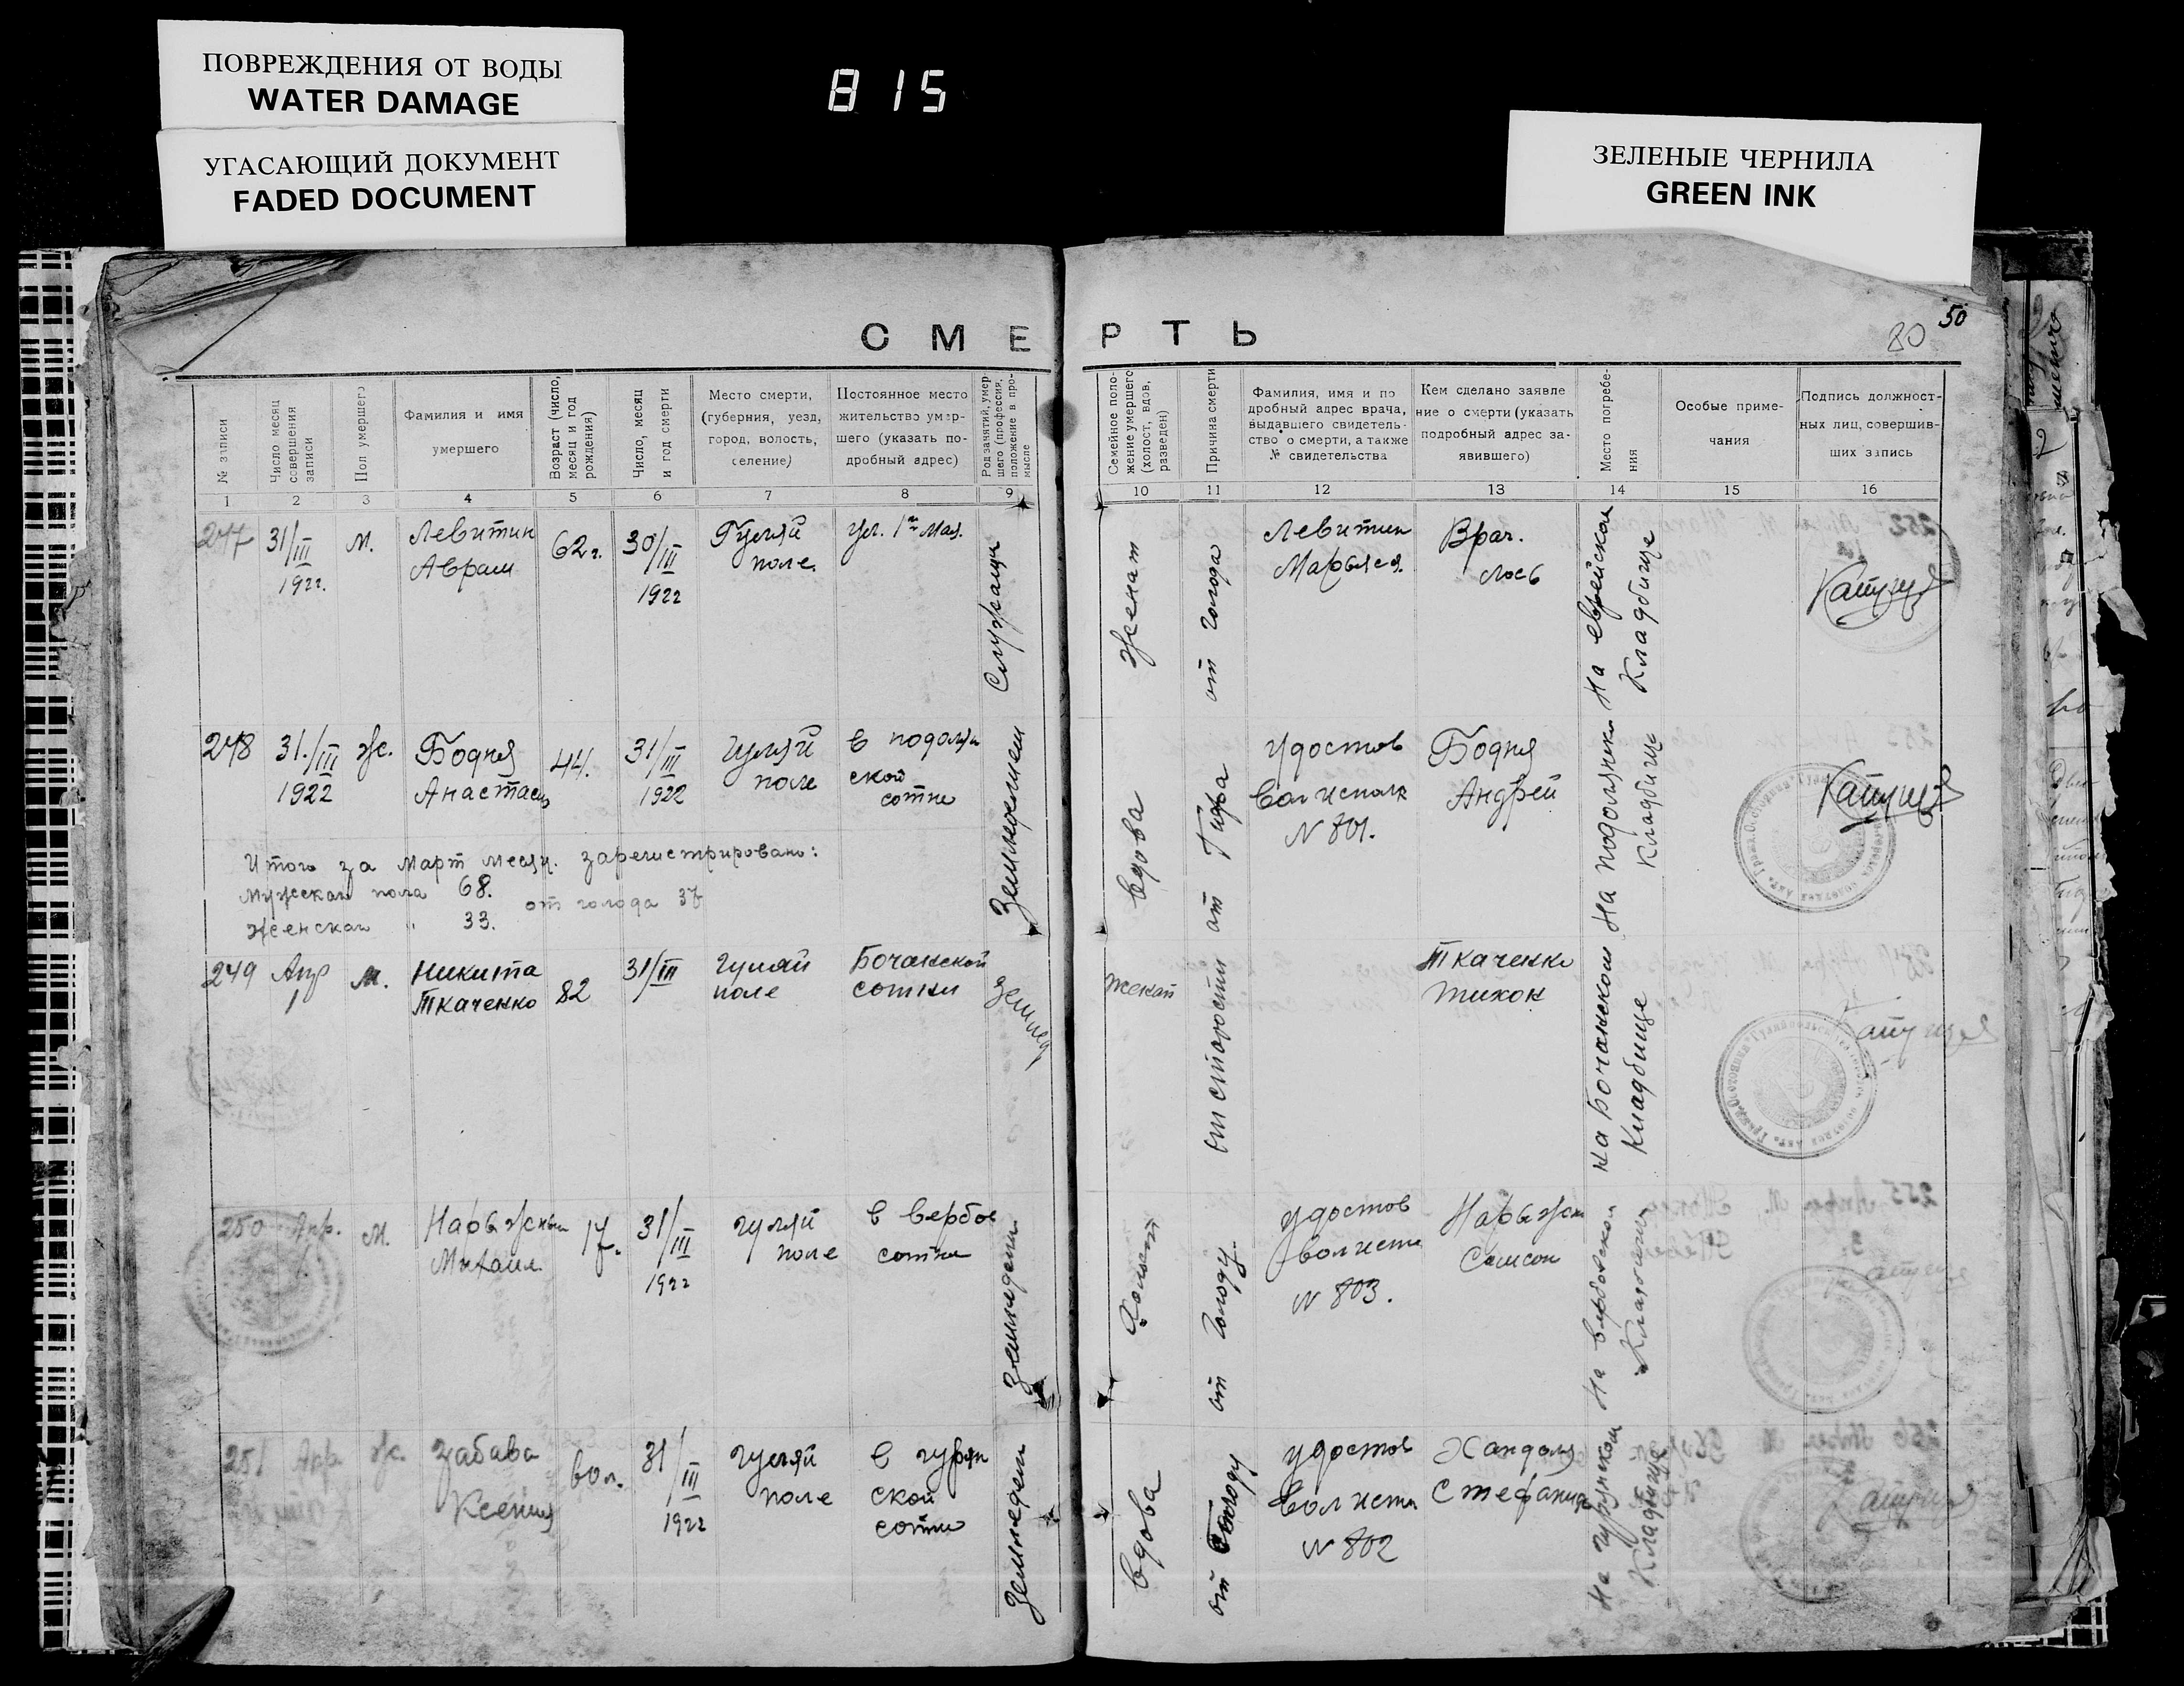 ПОВРЕЖДЕНИЯ ОТ ВОДЫ
WATER DAMAGE
УГАСАЮЩИЙ ДОКУМЕНТ
FADED DOCUMENT
815
ЗЕЛЕНЫЕ ЧЕРНИЛА
GREEN INK
50
80
СМЕРТЬ
№ записи
Число месяц
совершения
записи
Пол умершего
Фамилия и имя
умершего
Возраст (число,
месяц и год
рождения)
Число, месяц
и год смерти
Место смерти,
(губерния, уезд,
город, волость,
селение)
Постоянное место
жительство умер-
шего (указать по-
дробный адрес)
Род занятий, умер-
шего (профессия,
положение в про-
мысле
Семейное поло-
жение умершего
(холост, вдов,
разведен)
Причина смерти
Фамилия, имя и по
дробный адрес врача,
выдавшего свидетель-
ство о смерти, а также
№ свидетельства
Кем сделано заявле
ние о смерти (указать
подробный адрес за-
явившего)
Место погребе-
ния
Особые приме-
чания
Подпись должност-
ных лиц, совершив-
ших запись
1 2 3 4 5 6 7 8 9 10 11 12 13 14 15 16
247
31/III
1922.
м.
Левитин
Абрам
62 г.
30/III
1922
Гуляй
поле.
ул. 1го Мая.
Служащи
женат
от голода
Левитин
Врач.
Лось
На еврейском
Кладбище
248
31./III
1922
Ж.
Бодня
Анастасия
44.
31/III
1922
Гуляй
поле
в подоля
ской
сотне
вдова
от Тифа
удостов
Волисполк
N 801.
Бодня
Андрей
Кладбище
Итого за Март месяц. зарегистрировано:
Мужскаго пола 68.
от голода 37
Женскаго " 33.
249
Апр
1
м.
Никита
Ткаченко
82
31/III
Гуляй
поле
Бочанской
сотни
Землед
женат
от старости
Ткаченко
Тихон
на Бочанском
Кладбище
250
Апр.
1
м.
Михаил
17.
31/III
1922
гуляй
поле
в вербов
сотни
Холост
от голоду.
удостов
N 803.
Самсон
На вербовском
Кладбище
251
Апр
Ж.
Забава
Ксения
60 л.
31/III
1922
гуляй
поле
в гурян
ской
сотни
Земледел
вдова
от голоду
удостов
N 802
Стефанида
Кладбище